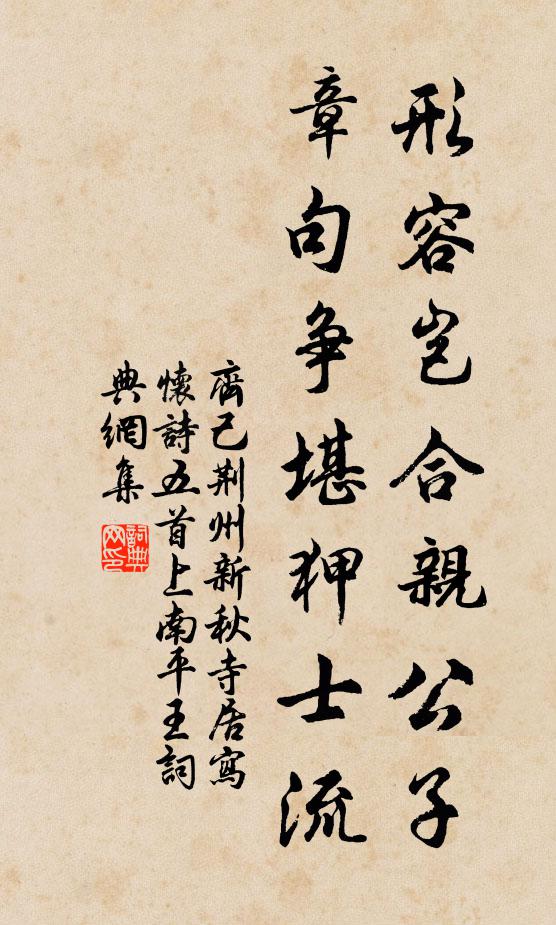 形容岂合親公子
章句争堪狎士流
齊己荆州新秋寺居寫
懷詩五首上南平王詞
典網集
詞典網印